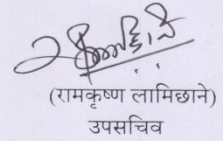 (रामकृष्ण लामिछाने)
उपसचिव